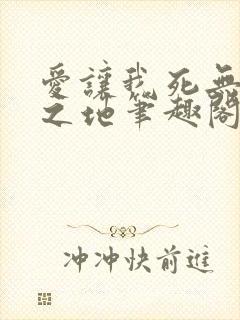 愛讓我死無
之地筆趣閣
冲冲快前進